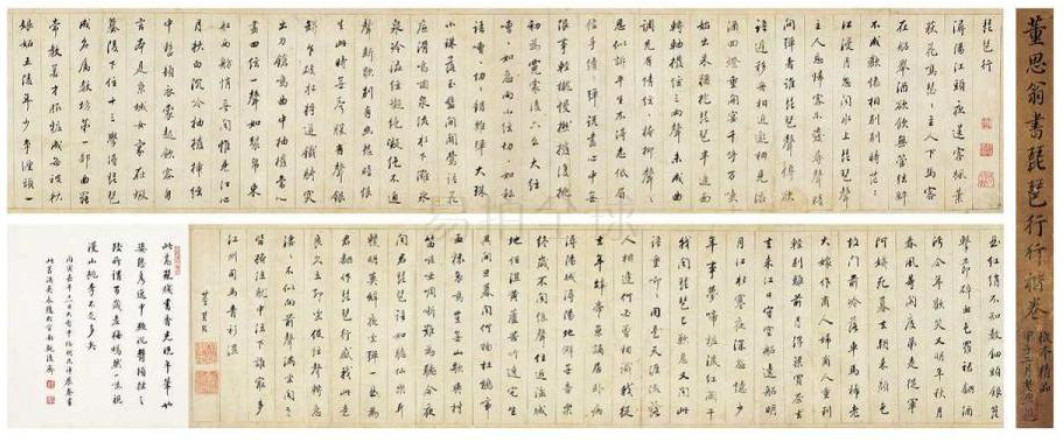 董思翁書琵琶行行楷卷
琵琶行
潯陽江頭夜送客楓葉
荻花鳴瑟瑟主人下馬客
在船舉酒欲飲無管絃醉
不成歡慘相別別時茫茫
江浸月忽聞水上琵琶聲
主人忘歸客不發尋聲暗
問彈者誰琵琶聲停欲
語遲移舟相近邀相見添
酒回燈重開宴千呼萬喚
始出來猶抱琵琶半遮面
轉軸撥絃三兩聲未成曲
調先有情絃絃掩抑聲聲
思似訴平生不得意低眉
信手續續彈說盡心中無
限事輕攏慢撚撥復挑
初為霓裳後六么大絃
嘈嘈如急雨小絃切切如私
語嘈嘈切切錯雜彈大珠
小珠落玉盤間關鶯語花
底滑幽咽泉流水下灘水
泉冷澀絃凝絕凝絕不通
聲漸歇別有幽愁暗恨
生此時無聲勝有聲銀
瓶乍破水漿迸鐵騎突
出刀鎗鳴曲中抽撥當心
畫四絃一聲如裂帛東
船西舫悄無聞惟見江心
月秋白沉吟抽撥插絃
中整頓衣裳起斂容自
言本是京城女家在蝦
蟆陵下住十三學得琵琶
成名屬教坊第一部曲罷
常教善才服粧成每被秋
娘妬五陵年少爭纏頭一
曲紅綃不知數鈿頭銀篦
擊節碎血色羅裙翻酒
污今年歡笑復明年秋月
春風等閒度弟走從軍
阿姨死暮去朝來顏色
故門前冷落車馬稀老
大嫁作商人婦商人重利
輕別離前月浮梁買茶去
去來江口守空船遶船明
月江水寒夜深忽憶少
年事夢啼粧淚紅闌干
我聞琵琶已歎息又聞此
語重唧唧同是天涯淪落
人相逢何必曾相識我從
去年辭帝京謫居臥病
潯陽城潯陽地僻無音樂
終歲不聞絲竹聲住近湓城
地低濕黃蘆苦竹遶宅生
其間旦暮聞何物杜鵑啼
血猿哀鳴豈無山歌與村
笛嘔啞啁哳難為聽今夜
聞君琵琶語如聽仙樂耳
暫明莫辭更坐彈一曲為
君翻作琵琶行感我此言
良久立却坐促絃絃轉急
淒淒不似向前聲滿坐聞之
皆掩泣就中泣下誰最多
江州司馬青衫濕
董其昌